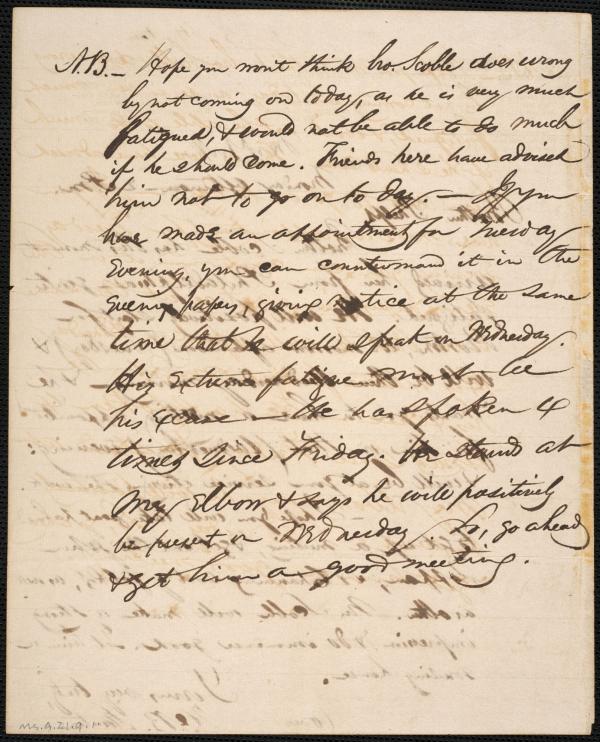 N.B. – Hope you won't think bro. Scoble does wrong
by not coming on today, as he is very much
fatigued, & would not be able to do much
if he should come. Friends here have advised
him not to go on to day. – If you
have made an appointment for Tuesday
Evening, you can countermand it in the
evening papers, giving notice at the same
time that he will speak on Wednesday.
His extreme fatigue must be
his excuse – He has spoken 4
times since Friday. He stands at
my elbow & says he will positively
be present on Wednesday. So, go ahead
& get him a good meeting.
Ms.A.21.9.